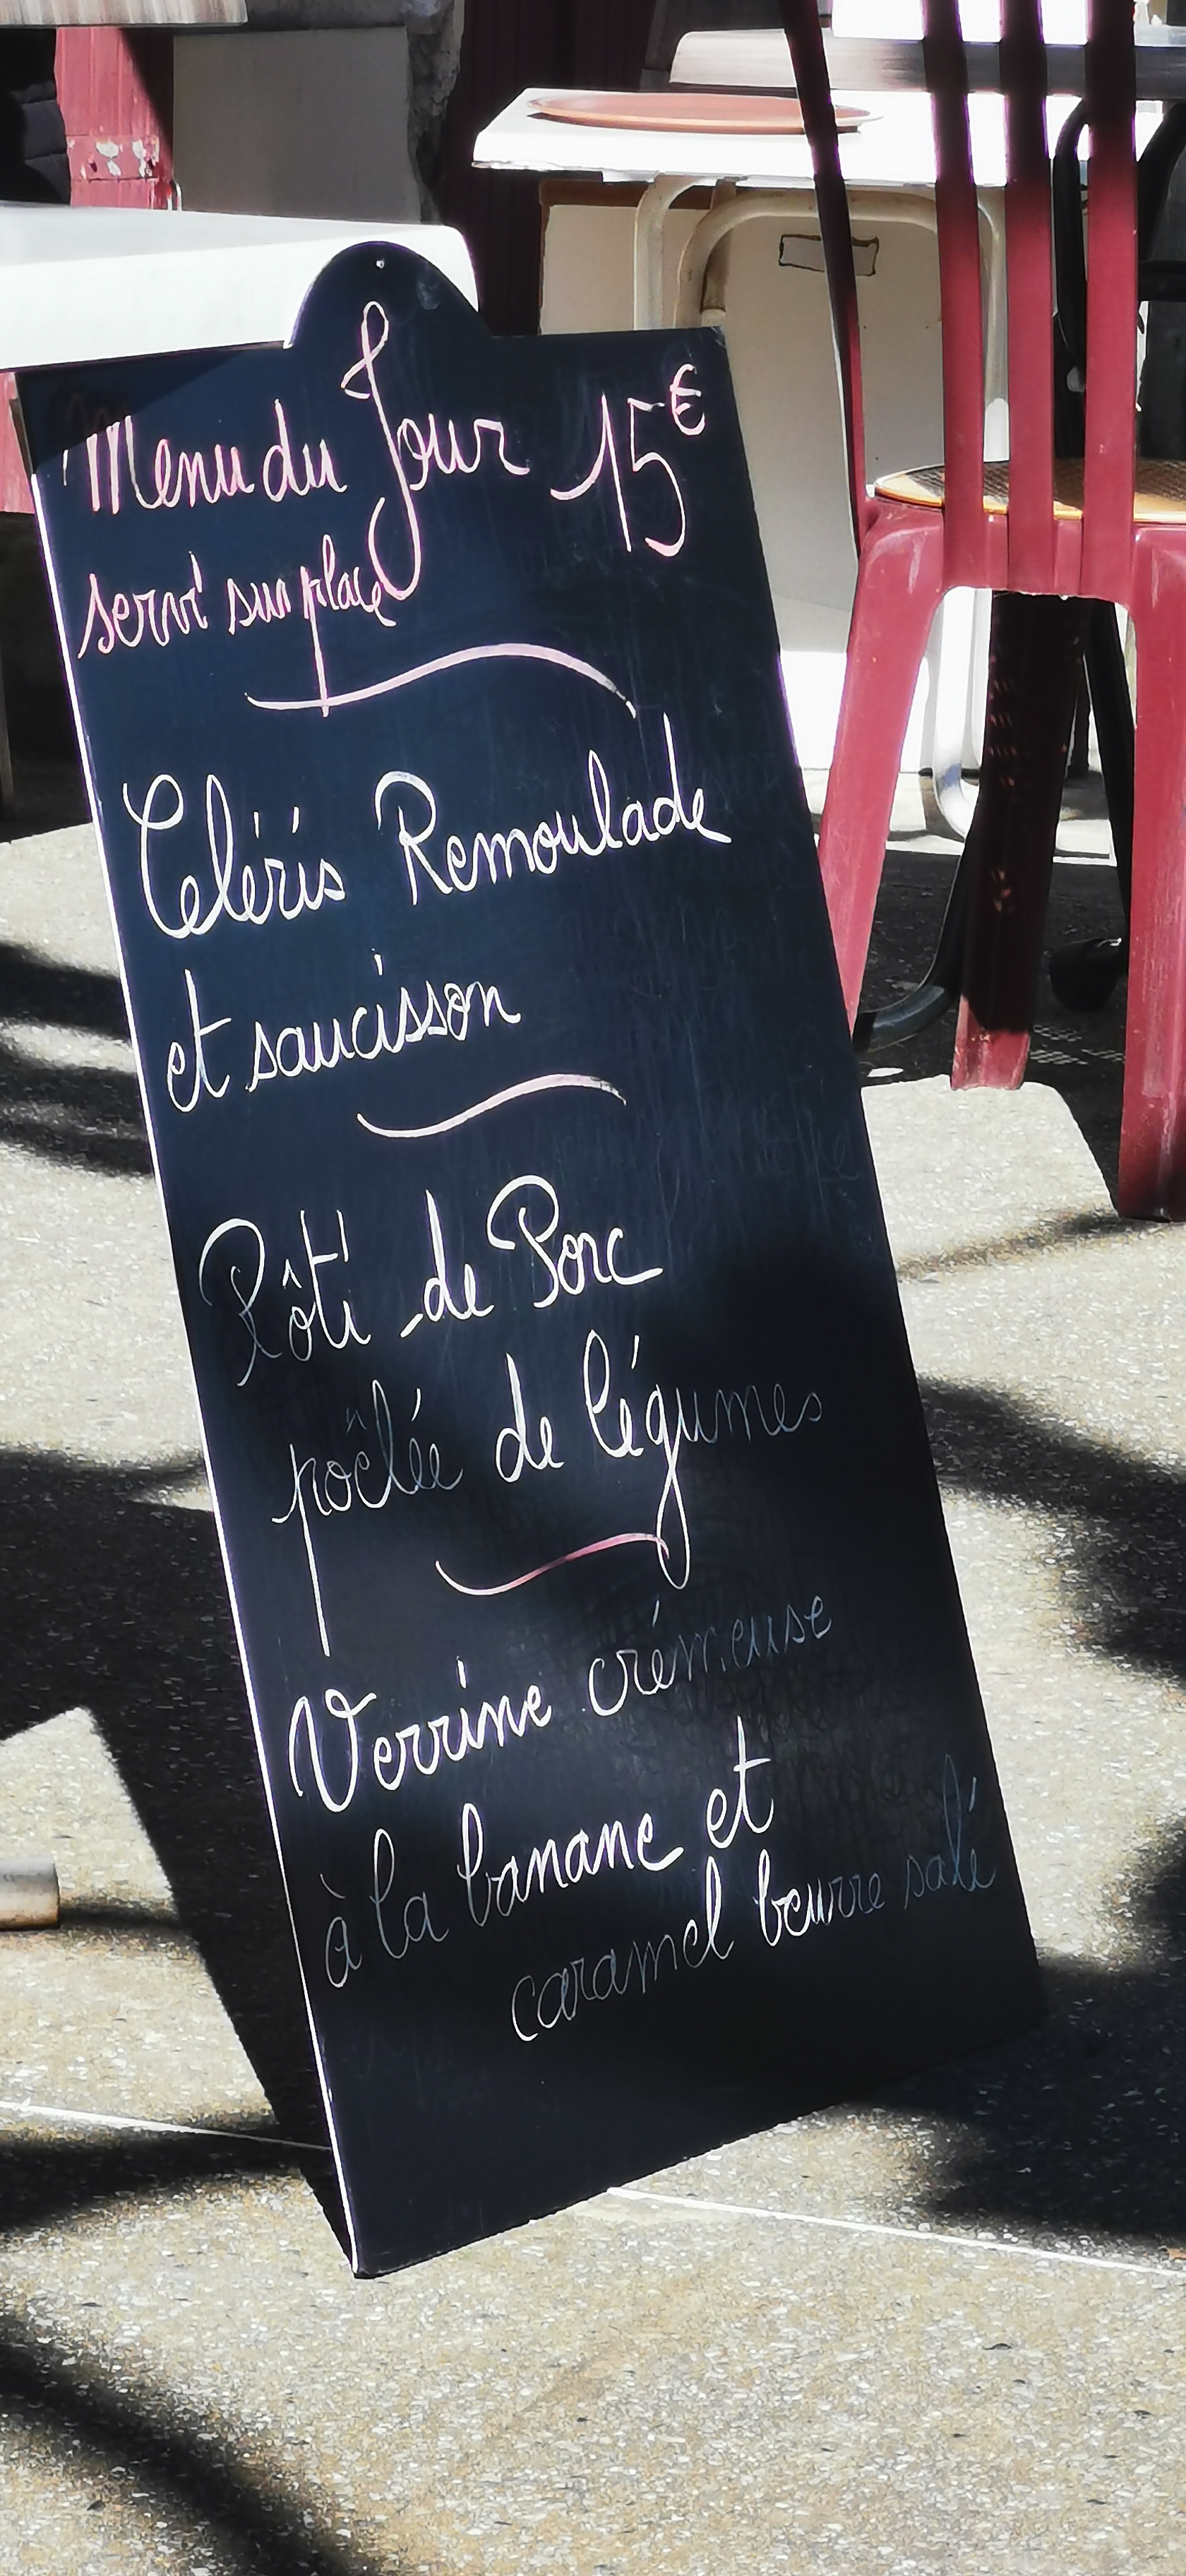 Menu du Jour 15€
servi sur place
Céléris Remoulade
et saucisson
Rôti de Porc
poêlée de légumes
Verrine crémeuse
à la banane et
caramel beurre salé